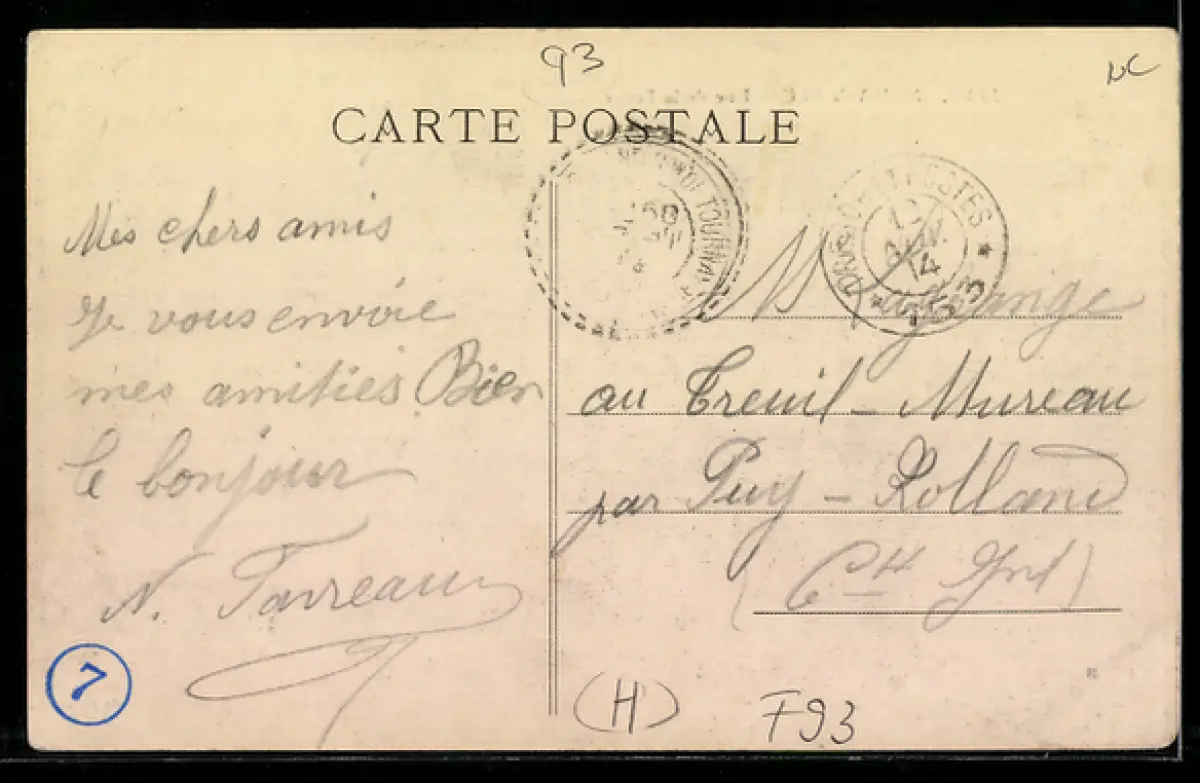 93
NC
CARTE POSTALE
TOURNAY
POSTES
14
153
Mes chers amis
Je vous envoie
mes amitiés Bien
le bonjour
N. Tavreau
7
M Lagrange
au Treuil - Mureau
par Puy - Rolland
(Cte Inf)
(H)
F93